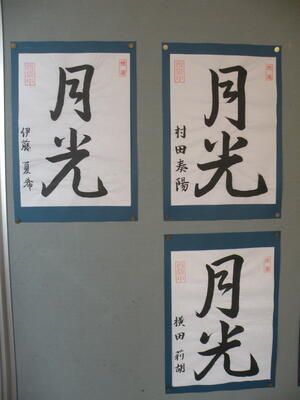 月光
伊藤夏希
月光
村田奏陽
月光
横田莉胡